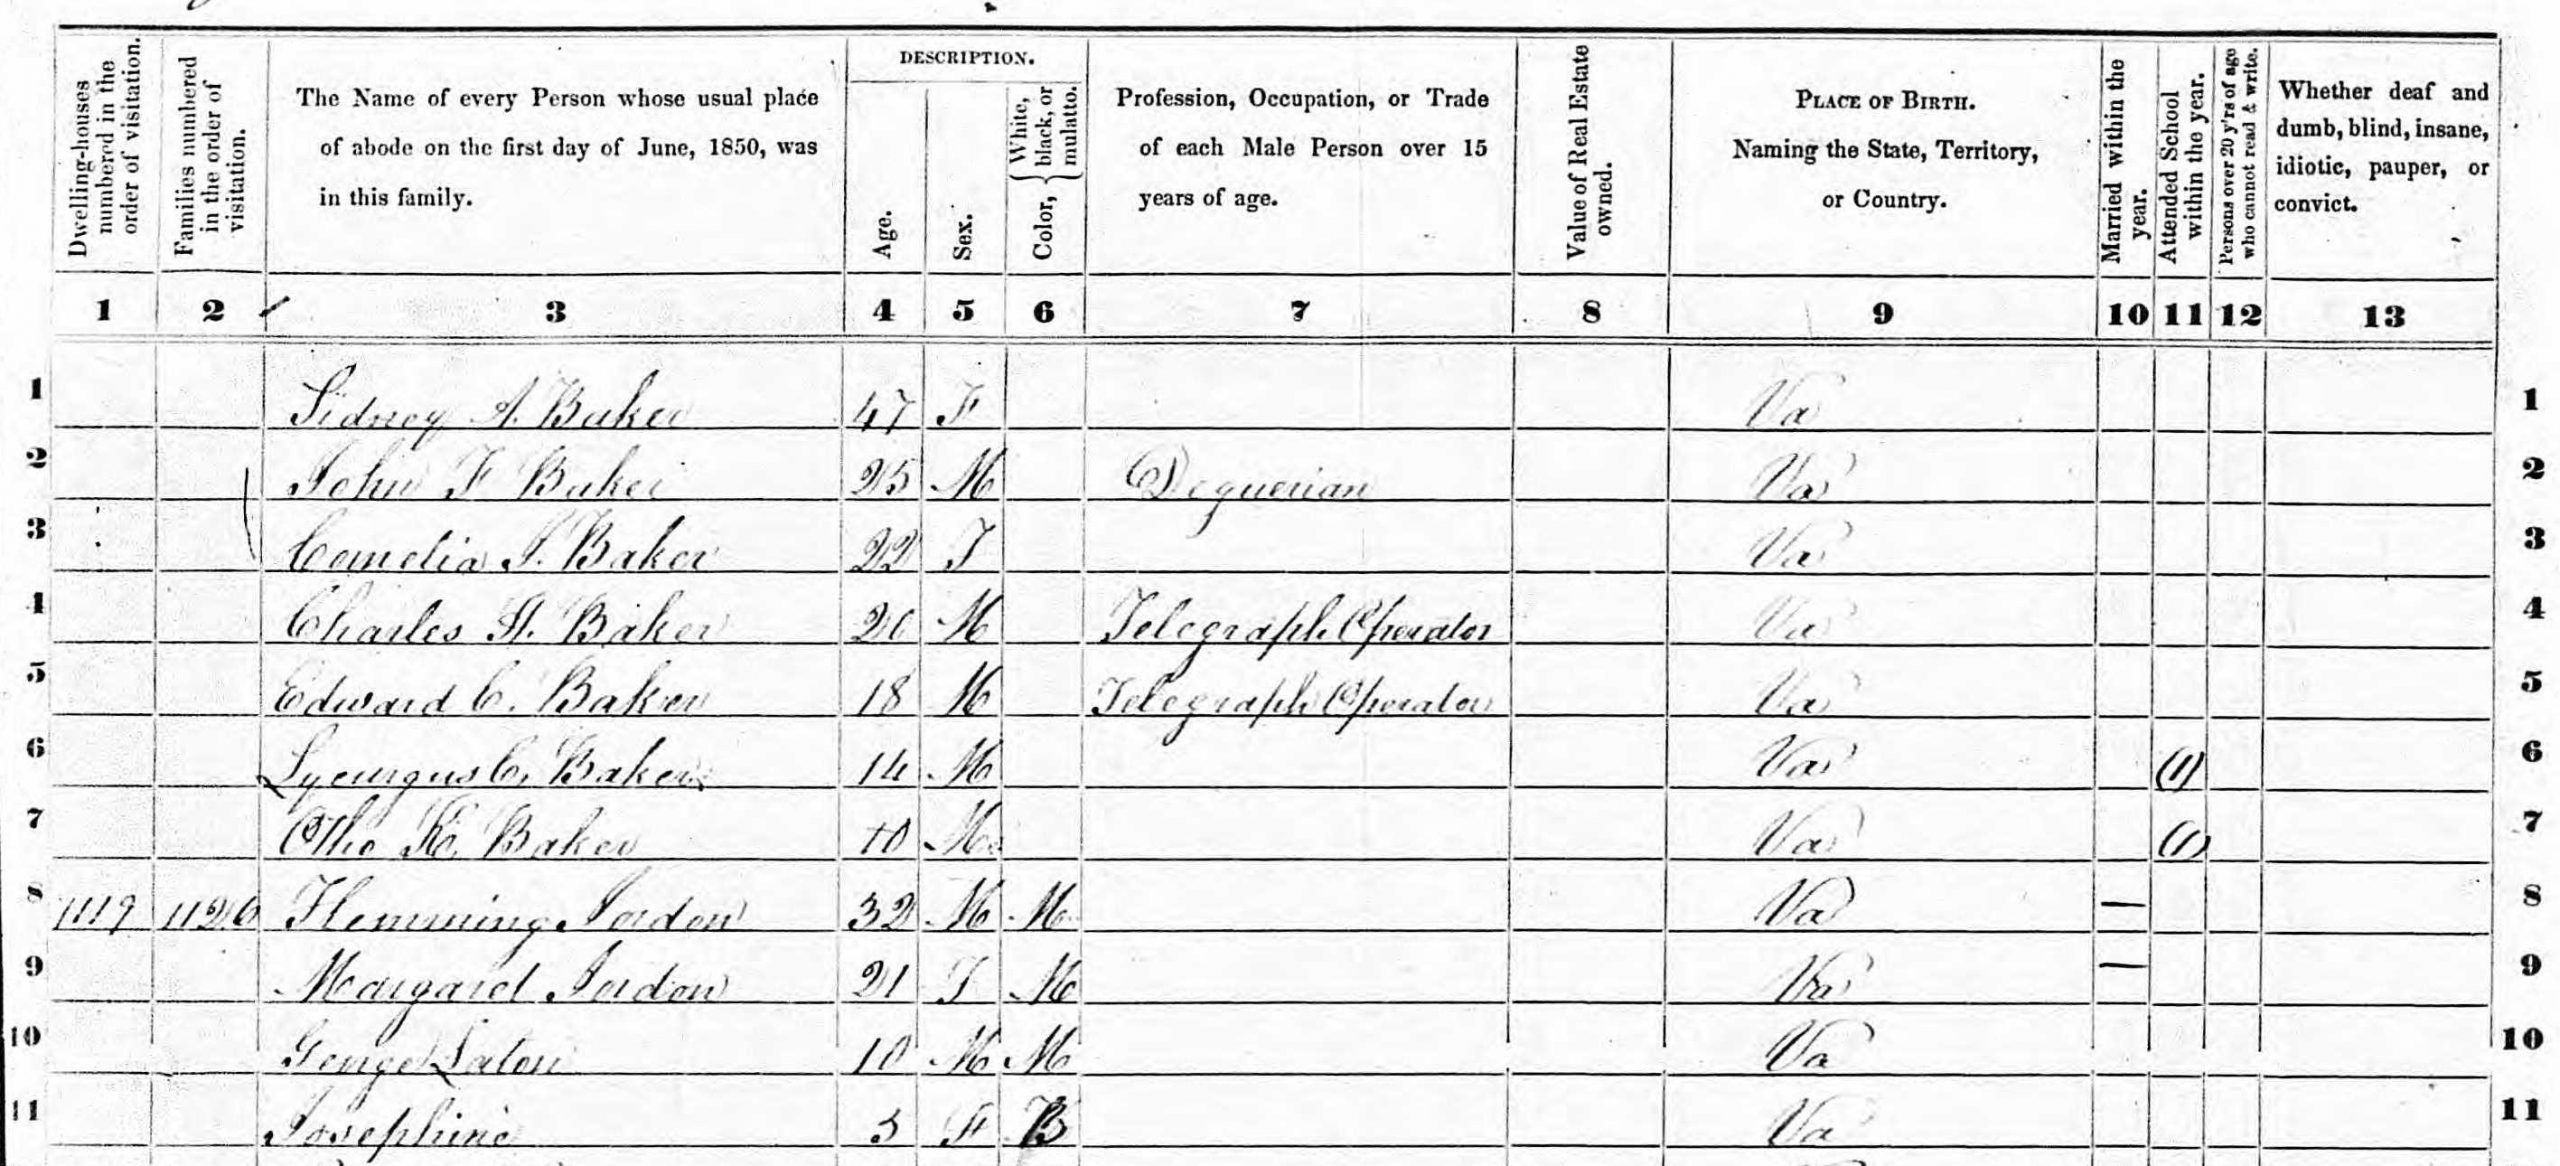 DESCRIPTION.
Dwelling-houses numbered in the order of visitation.
Families numbered in the order of visitation.
The Name of every Person whose usual place of abode on the first day of June, 1850, was in this family.
Age.
Sex.
Color, { White, black, or mulatto.
Profession, Occupation, or Trade of each Male Person over 15 years of age.
Value of Real Estate owned.
PLACE OF BIRTH. Naming the State, Territory, or Country.
Married within the year.
Attended School within the year.
Persons over 20 y'rs of age who cannot read & write.
Whether deaf and dumb, blind, insane, idiotic, pauper, or convict.
1 2 3 4 5 6 7 8 9 10 11 12 13
1 Sidney A. Baker 47 F Va 1
2 John F Baker 25 M Deguerian Va 2
3 Cornelia J. Baker 22 F Va 3
4 Charles H. Baker 20 M Telegraph Operator Va 4
5 Edward C. Baker 18 M Telegraph Operator Va 5
6 Lycurgus C. Baker 14 M Va (1) 6
7 Otho K. Baker 10 M Va (1) 7
8 1119 1126 Flemming Jordon 32 M M Va — 8
9 Margaret Jordon 21 F M Va — 9
10 George Laton 10 M M Va 10
11 Josephine 3 F B Va 11